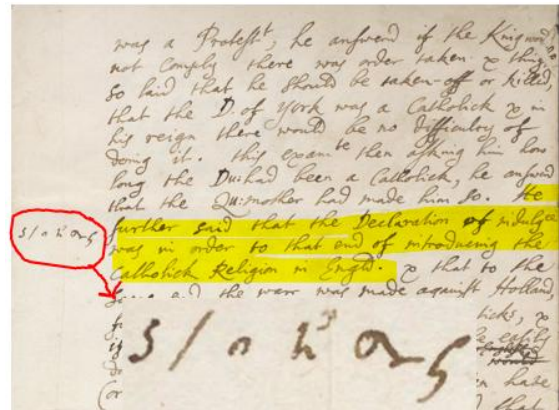 was a Protest^t, he answerd if the King would
not Comply there was order taken & things
so laid that he should be taken-off or killed
that the D. of York was a Catholick & in
his reign there would be no difficulty of
doing it. this exam^te then asking him how
long the Du: had been a Catholick, he answerd
that the Qu: mother had made him so. He
further said that the Declaration of indulge
was in order to that end of introducing the
Catholick Religion in Engld. & that to the
and the warr was made against Holland
ticks, &
would
n have
that